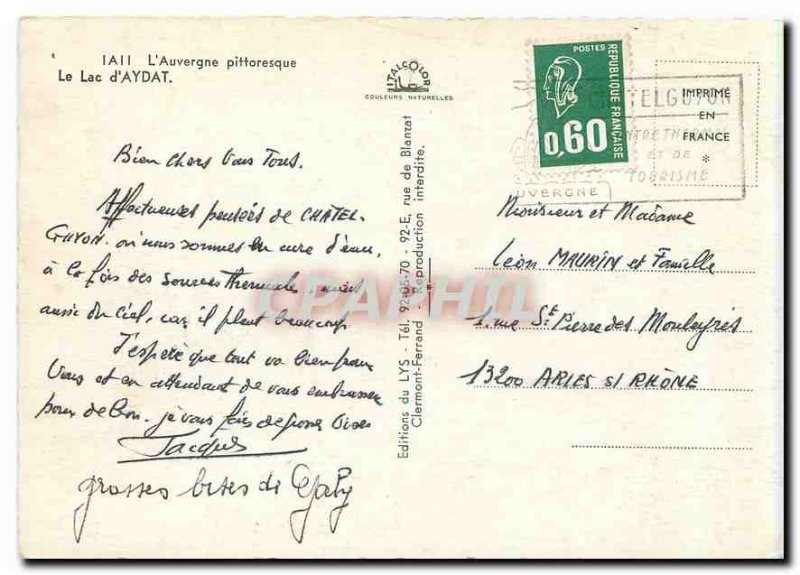 IAII L'Auvergne pittoresque
Le Lac d'AYDAT.
ITALCOLOR
COULEURS NATURELLES
POSTES
REPUBLIQUE FRANÇAISE
0,60
CHATELGUYON
CENTRE THERMAL
ET DE
TOURISME
AUVERGNE
IMPRIMÉ
EN
FRANCE
*
Bien chers Vous Tous.
Affectueuses pensées de CHATEL-
GUYON. où nous sommes en cure d'eau,
à la fois des sources thermales, mais
aussi du Ciel, car il pleut beaucoup.
J'espère que tout va bien pour
Vous et en attendant de vous embrasser
pour de bon. je vous fais de grosses bises
Jacques
grosses bises de Gaby
Editions du LYS - Tél. 92-05-70 - 92-E, rue de Blanzat
Clermont-Ferrand - Reproduction interdite.
Monsieur et Madame
Léon MAURIN et Famille
1. rue Ste Pierre des Mouleyrés
13200 ARLES s/ RHÔNE
CPAPHIL